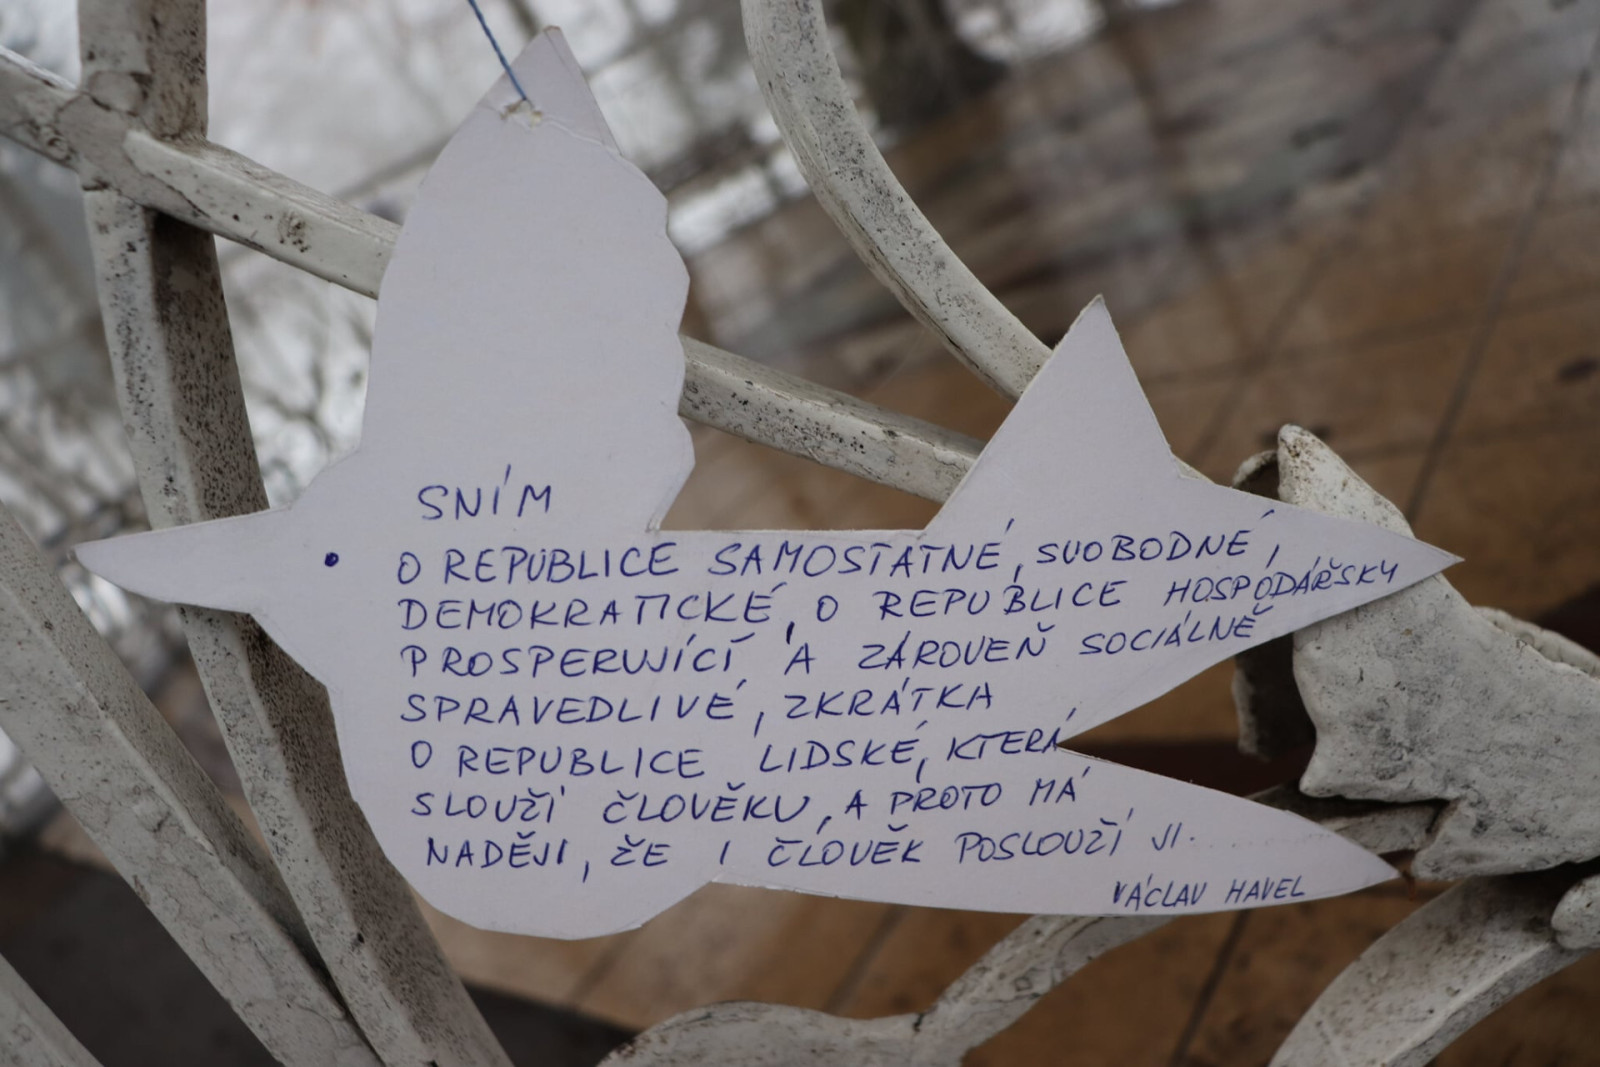 SNÍM
O REPUBLICE SAMOSTATNÉ, SVOBODNÉ,
DEMOKRATICKÉ, O REPUBLICE HOSPODÁŘSKY
PROSPERUJÍCÍ A ZÁROVEŇ SOCIÁLNĚ
SPRAVEDLIVÉ, ZKRÁTKA
O REPUBLICE LIDSKÉ, KTERÁ
SLOUŽÍ ČLOVĚKU, A PROTO MÁ
NADĚJI, ŽE I ČLOVĚK POSLOUŽÍ JÍ.......
VÁCLAV HAVEL